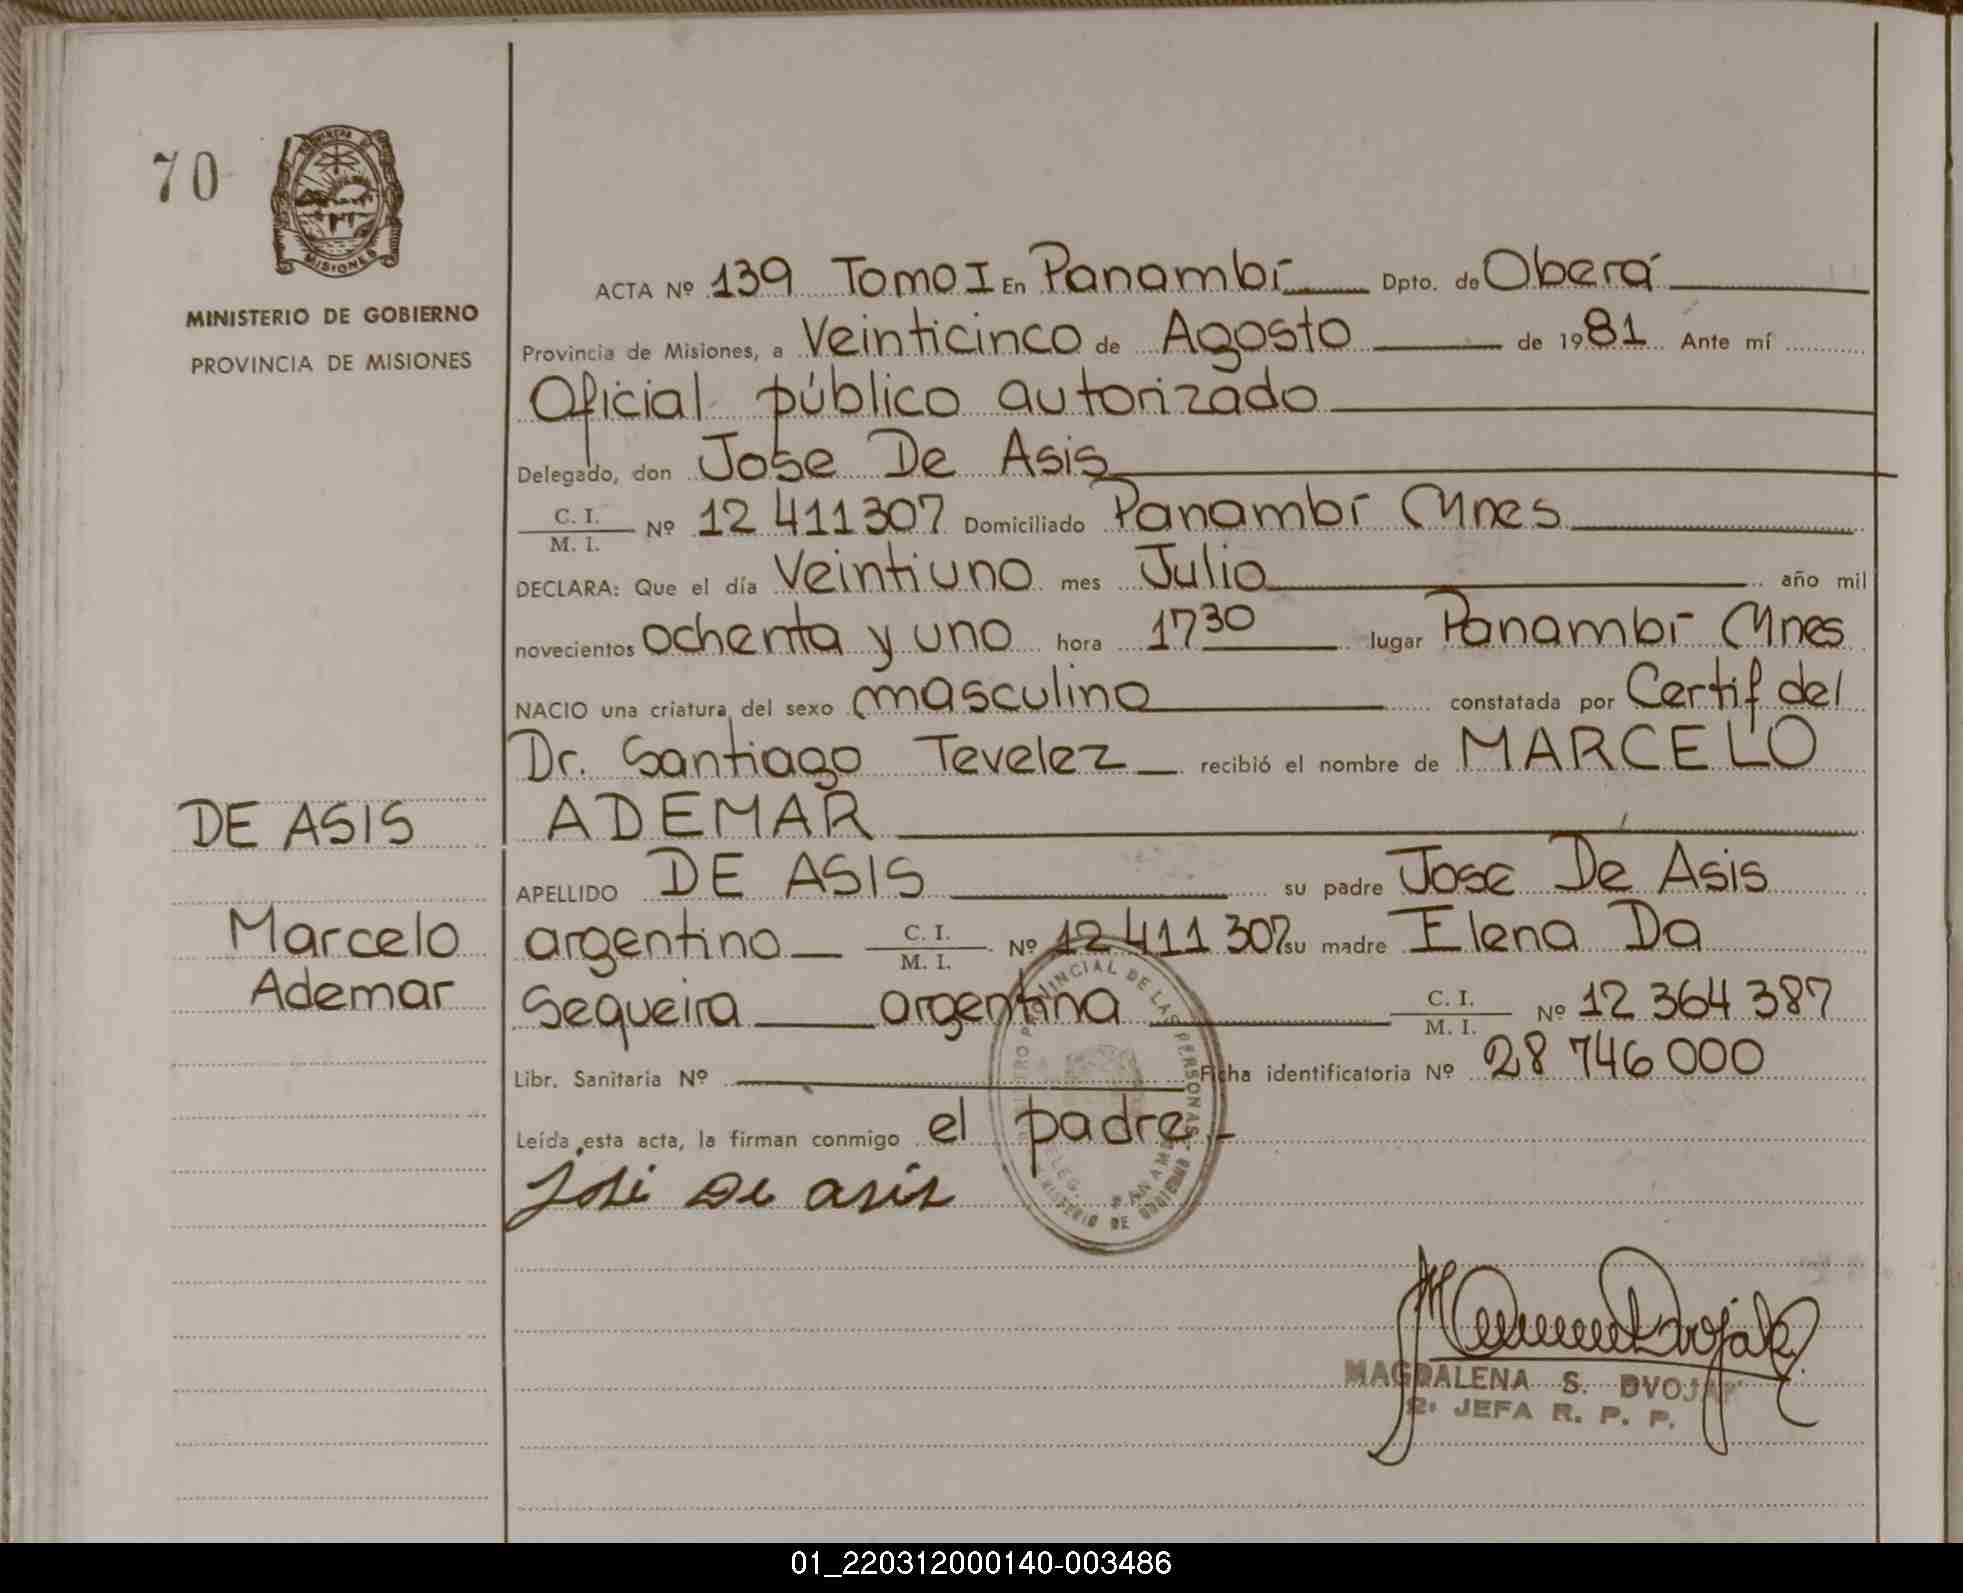 70
PROVINCIA DE
MISIONES
MINISTERIO DE GOBIERNO
PROVINCIA DE MISIONES
ACTA Nº 139 Tomo I En Panambí Dpto. de Oberá
Provincia de Misiones, a Veinticinco de Agosto de 1981 Ante mí
Oficial público autorizado
Delegado, don Jose De Asis
C. I.
M. I. Nº 12 411307 Domiciliado Panambí Mnes
DECLARA: Que el día Veintiuno mes Julio año mil
novecientos ochenta y uno hora 1730 lugar Panambí Mnes
NACIO una criatura del sexo masculino constatada por Certif del
Dr. Santiago Tevelez recibió el nombre de MARCELO
ADEMAR
DE ASIS
APELLIDO DE ASIS su padre Jose De Asis
Marcelo
Ademar
argentino C. I.
M. I. Nº 12 411 307 su madre Elena Da
Sequeira argentina C. I.
M. I. Nº 12 364 387
Libr. Sanitaria Nº Ficha identificatoria Nº 28 746 000
Leída esta acta, la firman conmigo el padre.-
José De asis
PROVINCIAL DE LAS PERSONAS
MINISTERIO DE GOBIERNO
MAGDALENA S. DVOJAK
2º JEFA R. P. P.
01_220312000140-003486